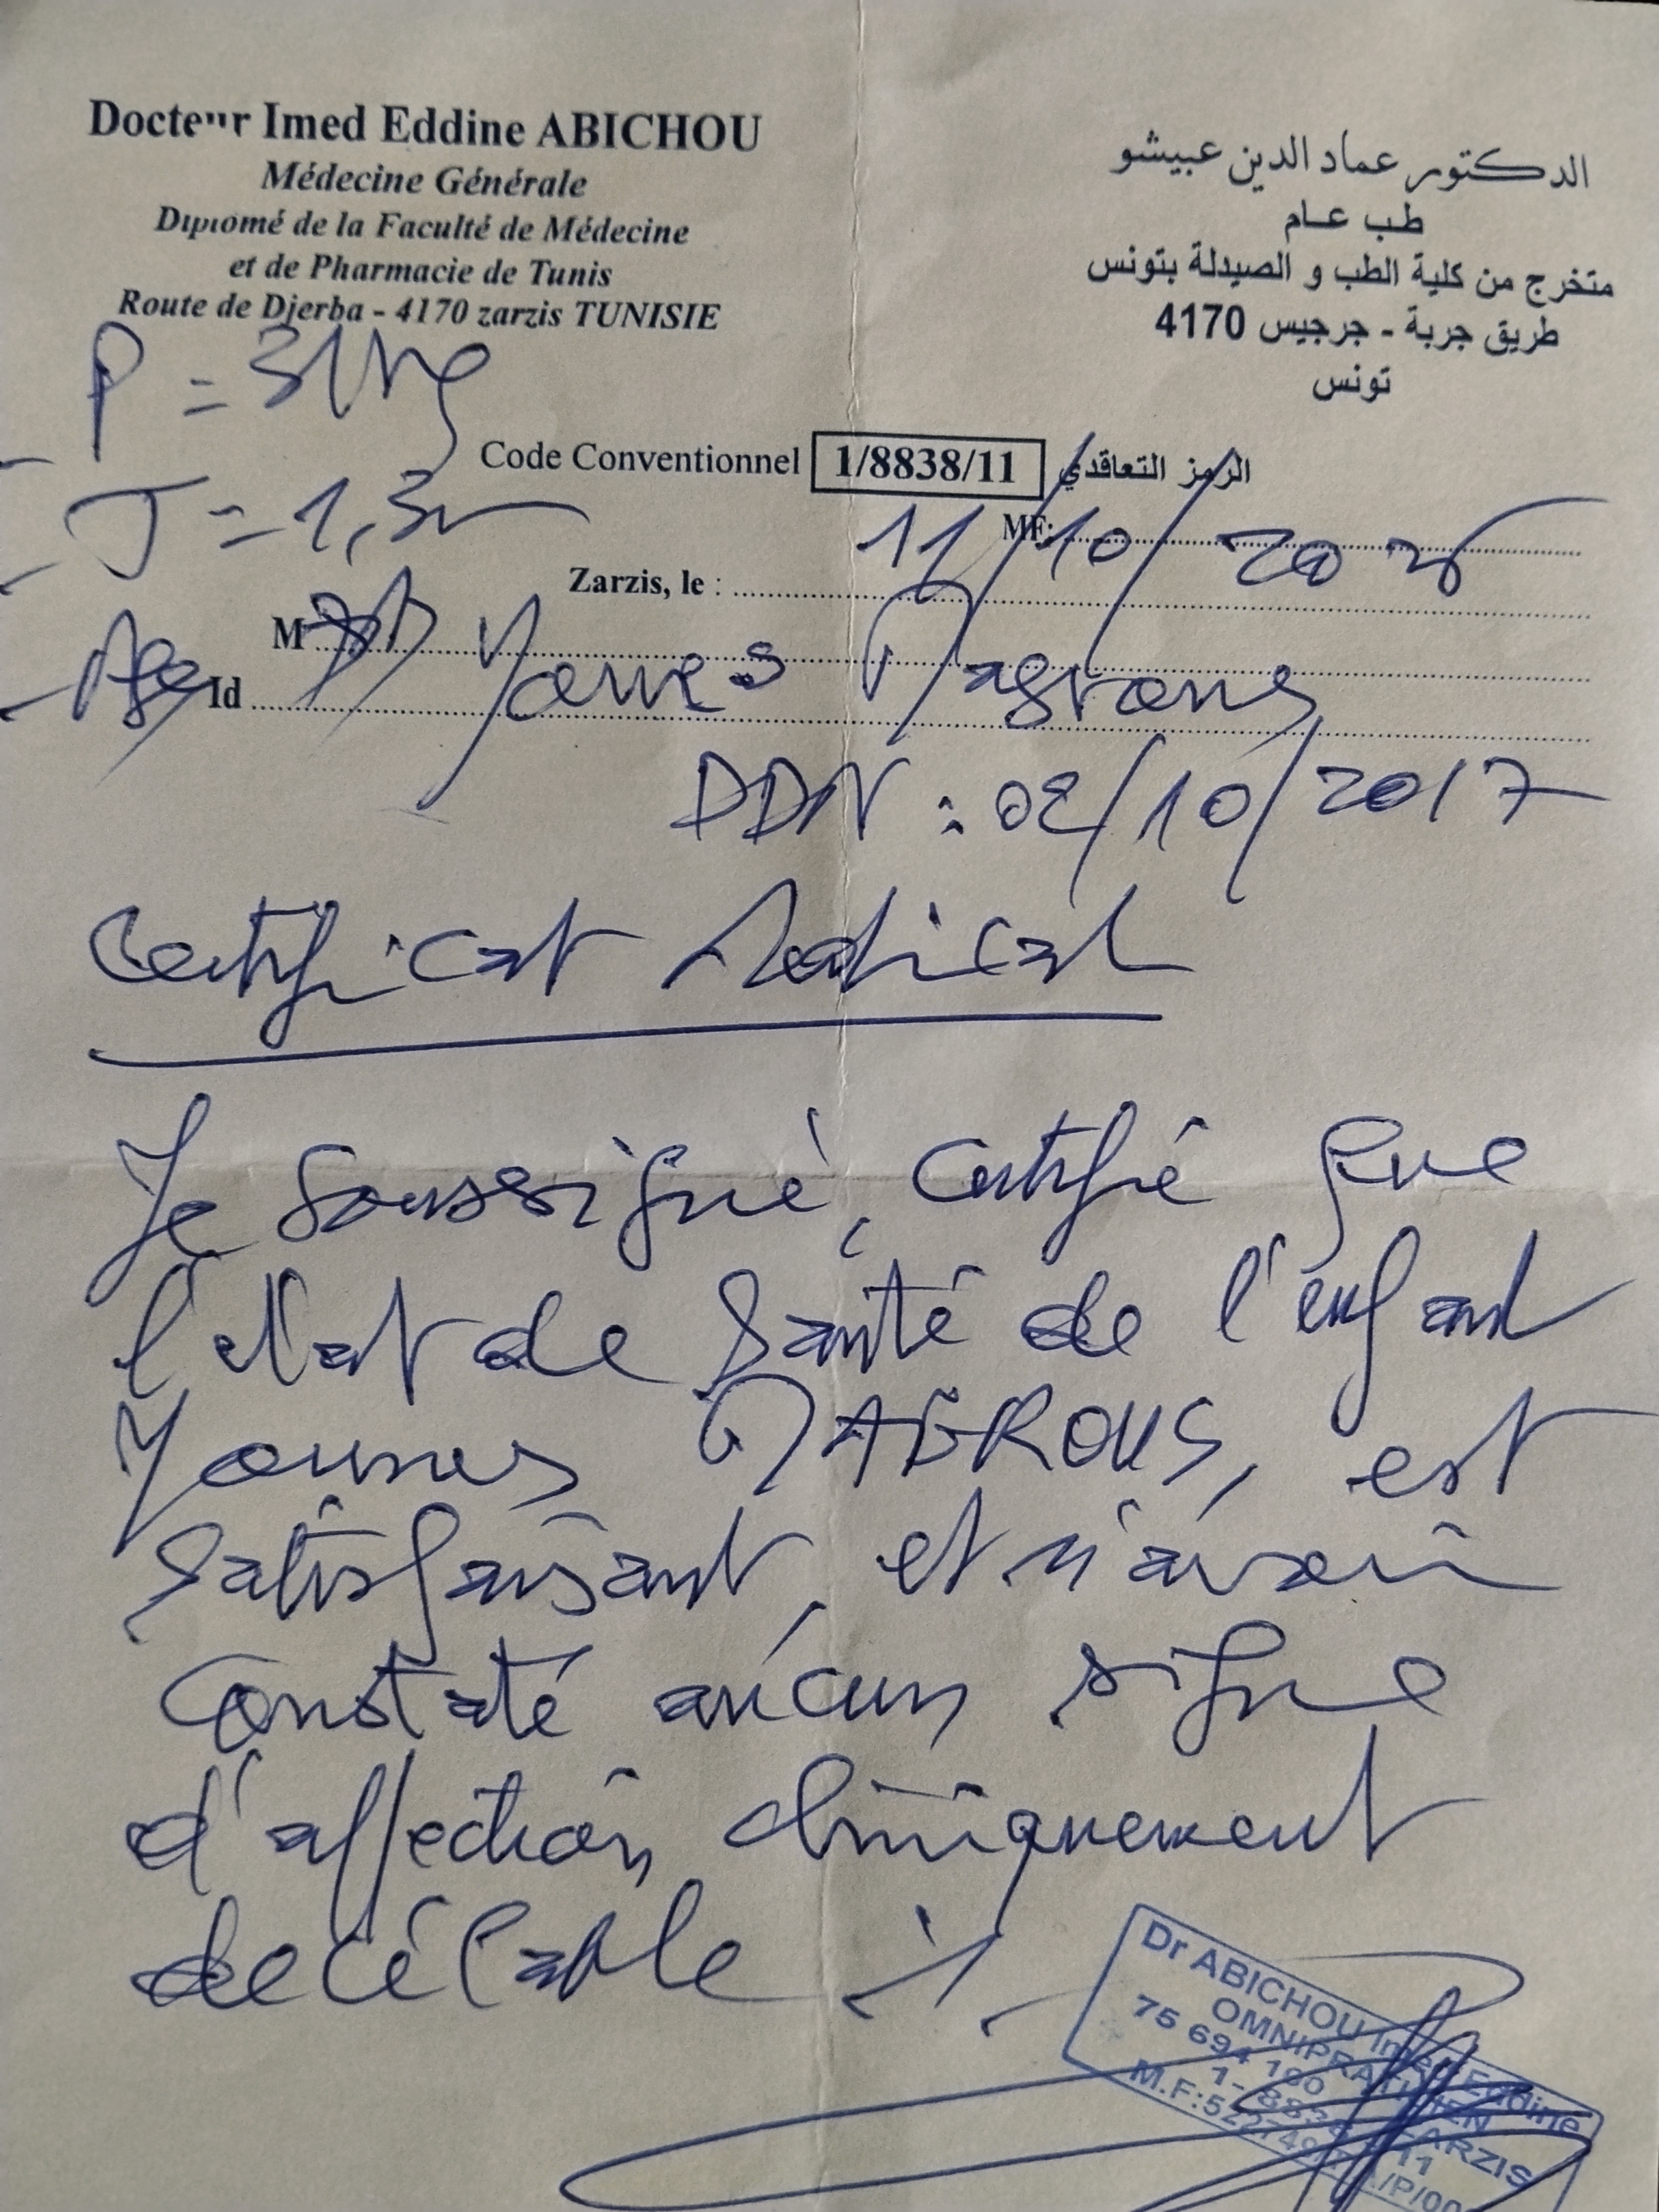 Docteur Imed Eddine ABICHOU
Médecine Générale
Diplomé de la Faculté de Médecine
et de Pharmacie de Tunis
Route de Djerba - 4170 zarzis TUNISIE
الدكتور عماد الدين عبيشو
طب عام
متخرج من كلية الطب و الصيدلة بتونس
طريق جربة - جرجيس 4170
تونس
P = 31kg
T = 1,3
Code Conventionnel 1/8838/11 الرمز التعاقدي
MF:
Zarzis, le : 11/10/2025
M
Id Younes Magrous
DDN : 02/10/2017
Certificat Medical
Je soussigné, certifié que
l'etat de santé de l'enfant
Younes MAGROUS, est
satisfaisant, et n'avoir
constaté aucun signe
d'affection cliniquement
decélable
Dr ABICHOU Imed Eddine
OMNIPRATICIEN
75 694 100 ZARZIS
1- 8838 - 11
M.F: